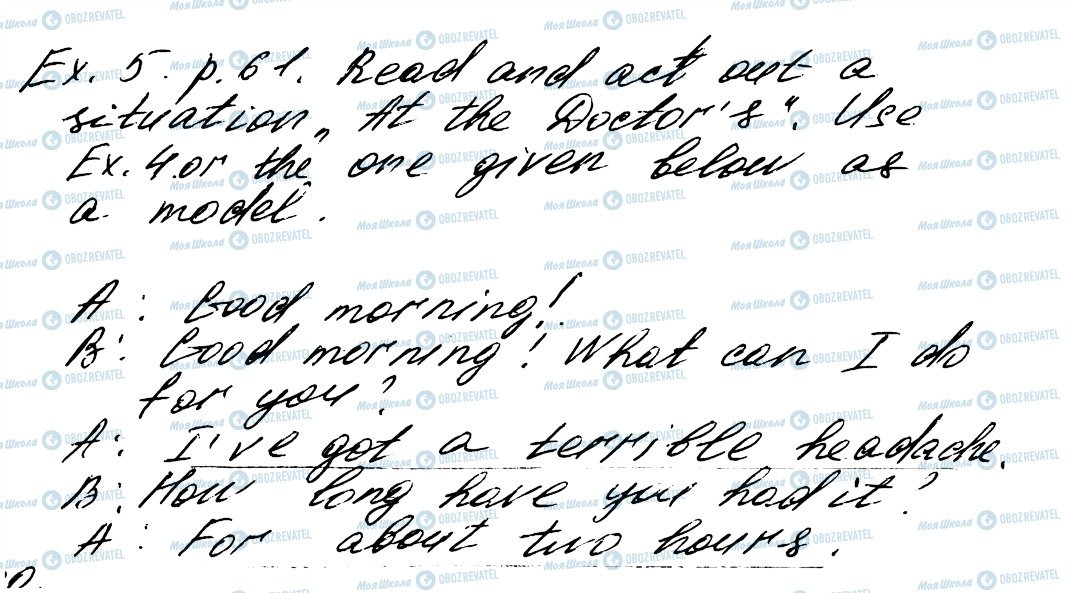 Ex. 5. p. 61. Read and act out a
situation „At the Doctor's“. Use
Ex. 4 or the one given below as
a model.
A: Good morning!
B: Good morning! What can I do
for you?
A: I've got a terrible headache.
B: How long have you had it?
A: For about two hours.